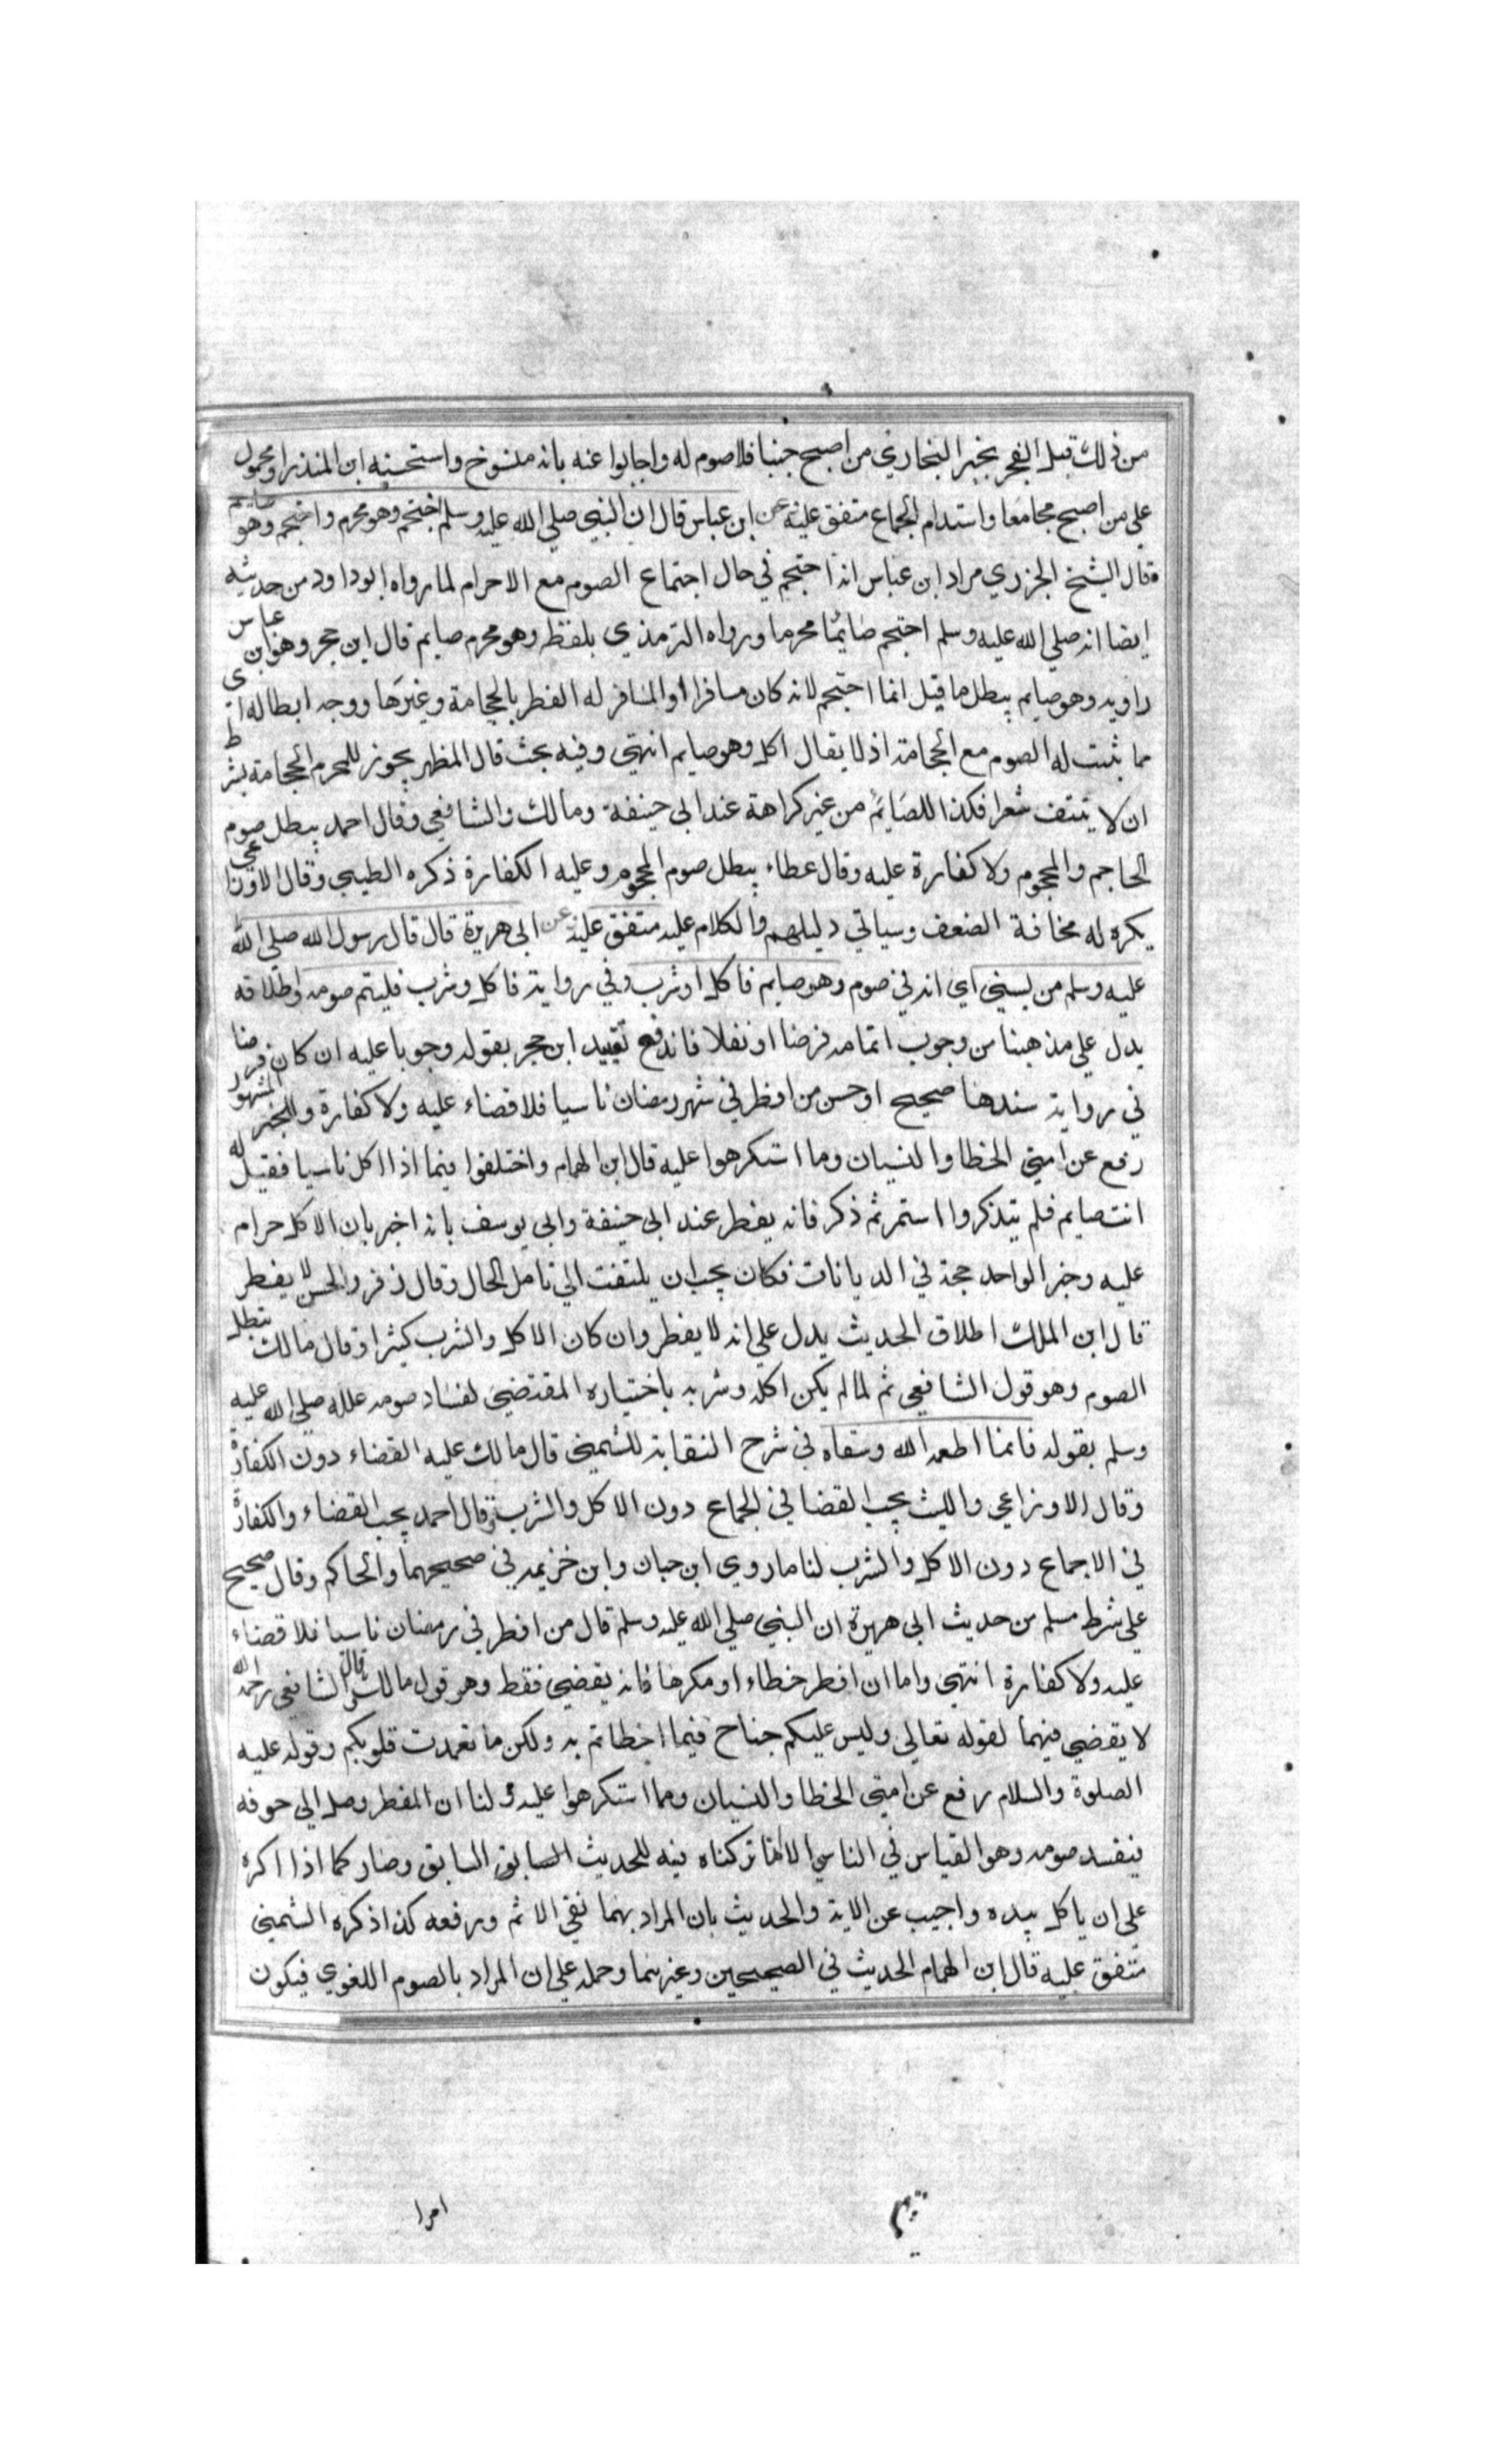 من ذلك قبل الفجر بخبر البخاري من اصبح جنبا فلا صوم له واجابوا عنه بانه منسوخ واستحسنه ابن المنذر او محمول
علي من اصبح مجامعا واستدام الجماع متفق عليه عن ابن عباس قال ان النبي صلي الله عليه وسلم احتجم وهو محرم واحتجم وهو صايم
قال الشيخ الجزري مراد ابن عباس انه احتجم في حال اجتماع الصوم مع الاحرام لما رواه ابو داود من حديثه
ايضا انه صلي الله عليه وسلم احتجم صايما محرما ورواه الترمذي بلفظ وهو محرم صايم قال ابن حجر وهو ابن عباس
راويه وهو صايم يبطل ما قيل انما احتجم لانه كان مسافرا والمسافر له الفطر بالحجامة وغيرها ووجه ابطاله
مما يثبت له الصوم مع الحجامة اذ لا يقال اكل وهو صايم انتهي وفيه بحث قال المظهر يجوز للمحرم الحجامة بشرط
ان لا ينتف شعرا فكذا للصايم من غير كراهة عند ابي حنيفة ومالك والشافعي وقال احمد يبطل صوم
الحاجم والمحجوم ولا كفارة عليه وقال عطاء يبطل صوم المحجوم وعليه الكفارة ذكره الطيبي وقال الاوزاعي
يكره له مخافة الضعف وسياتي دليلهم والكلام عليه متفق عليه عن ابي هريرة قال قال رسول الله صلي الله
عليه وسلم من نسي اي انه في صوم وهو صايم فاكل او شرب وفي رواية فاكل وشرب فليتم صومه واطلاقه
يدل علي مذهبنا من وجوب اتمامه فرضا او نفلا فاندفع تقييد ابن حجر بقوله وجوبا عليه ان كان فرضا
في رواية سندها صحيح او حسن من افطر في شهر رمضان ناسيا فلا قضاء عليه ولا كفارة وللخبر المشهور
رفع عن امتي الخطا والنسيان وما استكرهوا عليه قال ابن الهمام واختلفوا فيما اذا اكل ناسيا فقيل له
انت صايم فلم يتذكر واستمر ثم ذكر فانه يفطر عند ابي حنيفة وابي يوسف بانه اخبر بان الاكل حرام
عليه وخبر الواحد حجة في الديانات فكان يجب ان يلتفت الي تامل الحال وقال زفر والحسن لا يفطر
قال ابن الملك اطلاق الحديث يدل علي انه لا يفطر وان كان الاكل والشرب كثيرا وقال مالك يبطل
الصوم وهو قول الشافعي ثم لما لم يكن اكله وشربه باختياره المقتضي لفساد صومه علله صلي الله عليه
وسلم بقوله فانما اطعمه الله وسقاه في شرح النقاية للشمني قال مالك عليه القضاء دون الكفارة
وقال الاوزاعي والليث يجب القضا في الجماع دون الاكل والشرب وقال احمد يجب القضاء والكفارة
في الاجماع دون الاكل والشرب لنا ما روي ابن حبان وابن خزيمه في صحيحهما والحاكم وقال صحيح
علي شرط مسلم من حديث ابي هريرة ان النبي صلي الله عليه وسلم قال من افطر في رمضان ناسيا فلا قضاء
عليه ولا كفارة انتهي واما ان افطر خطاء او مكرها فانه يقضي فقط وهو قول مالك وقال الشافعي رحمه الله
لا يقضي فيهما لقوله تعالي وليس عليكم جناح فيما اخطاتم به ولكن ما تعمدت قلوبكم وقوله عليه
الصلوة والسلام رفع عن امتي الخطا والنسيان وما استكرهوا عليه ولنا ان المفطر وصل الي جوفه
فيفسد صومه وهو القياس في الناسي الا انا تركناه فيه للحديث السابق السابق وصار كما اذا اكره
علي ان ياكل بيده واجيب عن الاية والحديث بان المراد بهما نفي الاثم ورفعه كذا ذكره الشمني
متفق عليه قال ابن الهمام الحديث في الصحيحين وغيرهما وحمله علي ان المراد بالصوم اللغوي فيكون
امرا